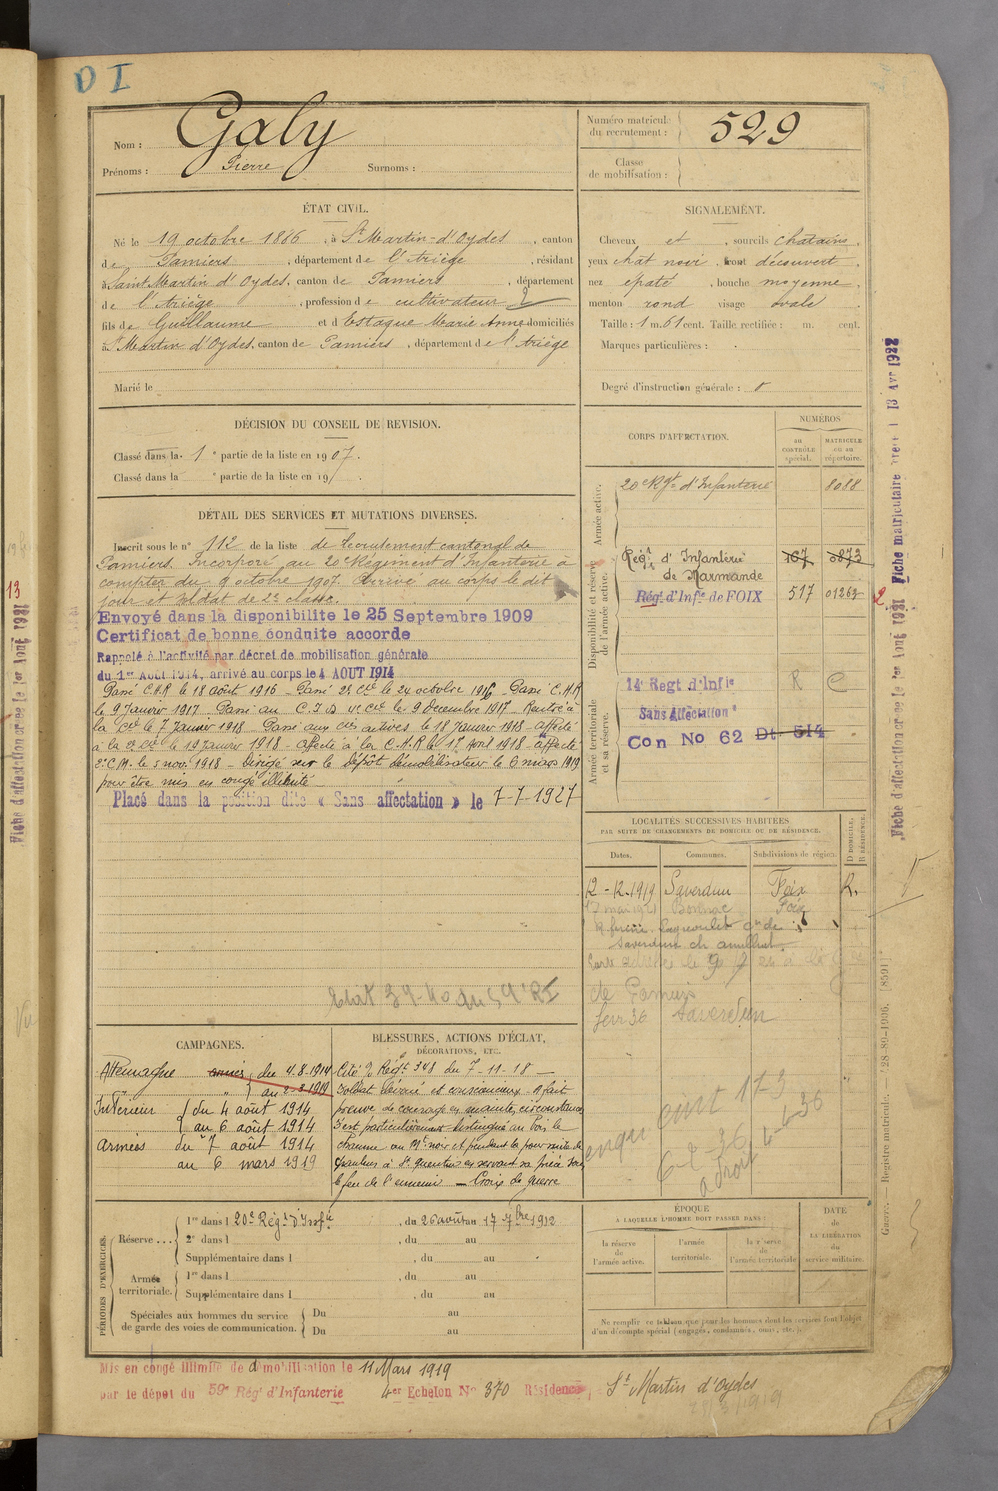 D I
Nom : Galy
Prénoms : Pierre Surnoms :
Numéro matricule du recrutement : 529
Classe de mobilisation :
ÉTAT CIVIL.
Né le 19 octobre 1886, à St Martin-d'Oydes, canton
de Pamiers, département de l'Ariège, résidant
à Saint Martin d'Oydes, canton de Pamiers, département
de l'Ariège, profession de cultivateur
fils de Guillaume et d'Estaque Marie Anne domiciliés
à St Martin d'Oydes, canton de Pamiers, département de l'Ariège
Marié le
SIGNALEMENT.
Cheveux et , sourcils chatains,
yeux chat noir, front découvert,
nez épaté, bouche moyenne,
menton rond visage ovale
Taille : 1 m. 61 cent. Taille rectifiée : m. cent.
Marques particulières :
Degré d'instruction générale : 0
DÉCISION DU CONSEIL DE REVISION.
Classé dans la 1e partie de la liste en 1907.
Classé dans la e partie de la liste en 19
DÉTAIL DES SERVICES ET MUTATIONS DIVERSES.
Inscrit sous le n° 112 de la liste de recrutement cantonal de
Pamiers. Incorporé au 20e Régiment d'Infanterie à
compter du 9 octobre 1907. Arrivé au corps le dit
jour et soldat de 2e classe.
Envoyé dans la disponibilité le 25 Septembre 1909
Certificat de bonne conduite accordé
Rappelé à l'activité par décret de mobilisation générale
du 1er AOUT 1914, arrivé au corps le 4 AOUT 1914
Passé C.H.R le 18 août 1916 - Passé 25 Cie le 24 octobre 1916 - Passé C.H.R
le 9 Janvier 1917 - Passé au C.I.D le 9 décembre 1917 - Rentré à
la Cie le 7 Janvier 1918 - Passé aux Cies actives le 18 Janvier 1918 - affecté
à la Cie le 19 Janvier 1918 - affecté à la C.H.R le 1er Avril 1918 - affecté
2e C.M. le 5 nov. 1918 - Dirigé sur le Dépôt démobilisateur le 6 mars 1919
pour être mis en congé illimité -
Placé dans la position dite « Sans affectation » le 7-7-1927
CORPS D'AFFECTATION.
NUMÉROS
au contrôle spécial.
MATRICULE ou au répertoire.
Armée active.
20e Rgt d'Infanterie 8088
Disponibilité et réserve de l'armée active.
Régt d'Infanterie 167 0873
de Marmande
Rég. d'Infie de FOIX 517 01263
Armée territoriale et sa réserve.
14e Regt d'Infie R C
Sans Affectation
Con No 62 Dt 514
LOCALITÉS SUCCESSIVES HABITÉES
PAR SUITE DE CHANGEMENTS DE DOMICILE OU DE RÉSIDENCE.
Dates. Communes. Subdivisions de région. D DOMICILE, R RÉSIDENCE.
12-12-1919 Saverdun Foix R.
17 mai 1921 Foix
de Pamiers
fevr 36 Saverdun
CAMPAGNES.
Allemagne armées, du 4.8.1914
au 2-3-1919
Intérieur du 4 août 1914
au 6 août 1914
Armées du 7 août 1914
au 6 mars 1919
BLESSURES, ACTIONS D'ÉCLAT,
DÉCORATIONS, ETC.
Cité O Régt 348 du 7-11-18 -
Soldat dévoué et consciencieux - A fait
preuve de courage en mainte circonstance
S'est particulièrement distingué au Bois le
Chaume au Mt noir et pendant la poursuite de
à St Quentin en servant sa pièce sous
le feu de l'ennemi - Croix de guerre
PÉRIODES D'EXERCICES.
Réserve...
1re dans l 20e Régt d'Infie , du 26 août au 17 7bre 1912
2e dans l , du au
Supplémentaire dans l , du au
Armée territoriale.
1re dans l , du au
Supplémentaire dans l , du au
Spéciales aux hommes du service
de garde des voies de communication.
Du au
Du au
ÉPOQUE
A LAQUELLE L'HOMME DOIT PASSER DANS :
la réserve de l'armée active.
l'armée territoriale.
la réserve de l'armée territoriale
DATE de LA LIBÉRATION du service militaire.
Ne remplir ce tableau que pour les hommes dont les services font l'objet
d'un décompte spécial (engagés, condamnés, omis, etc.).
Mis en congé illimité de démobilisation le 11 Mars 1919
par le dépôt du 59e Rég. d'Infanterie 4er Echelon No 370 Résidence, St Martin d'Oydes
Fiche d'affectation créée le 1er Août 1931 Fiche matriculaire 13 Avr 1922
Guerre. — Registre matricule. 28-80-1906. [8591]